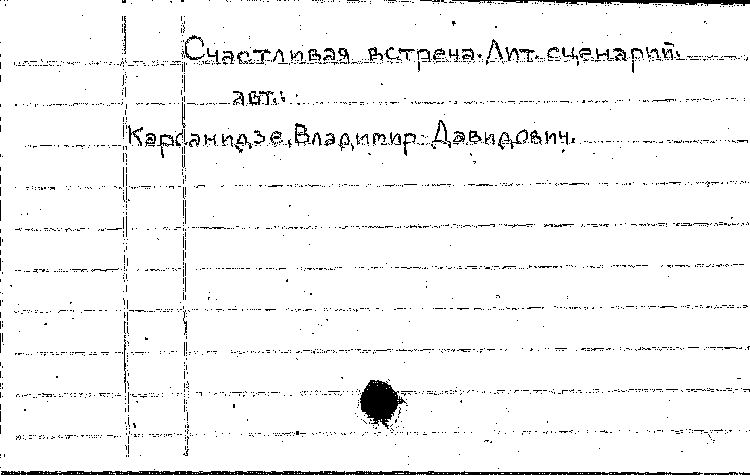 Счастливая встреча. Лит. сценарий.
авт.:
Карсанидзе, Владимир Давидович.